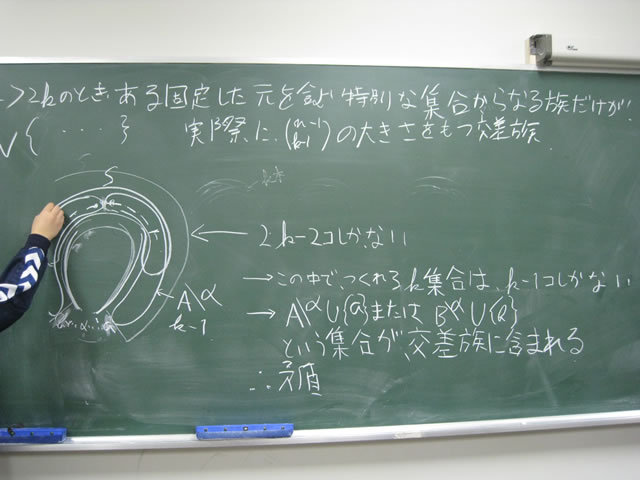 >2kのとき、ある固定した元を含む特別な集合からなる族だけが、
∨{ . . . . } 実際に、(n-1 k-1)の大きさをもつ交差族.
S
← 2k-2コしかない
→この中で、つくれるk集合は、k-1コしかない
A\α
k-1
→ A\α∪{a}または、B\α∪{a}
という集合が、交差族に含まれる
∴矛盾